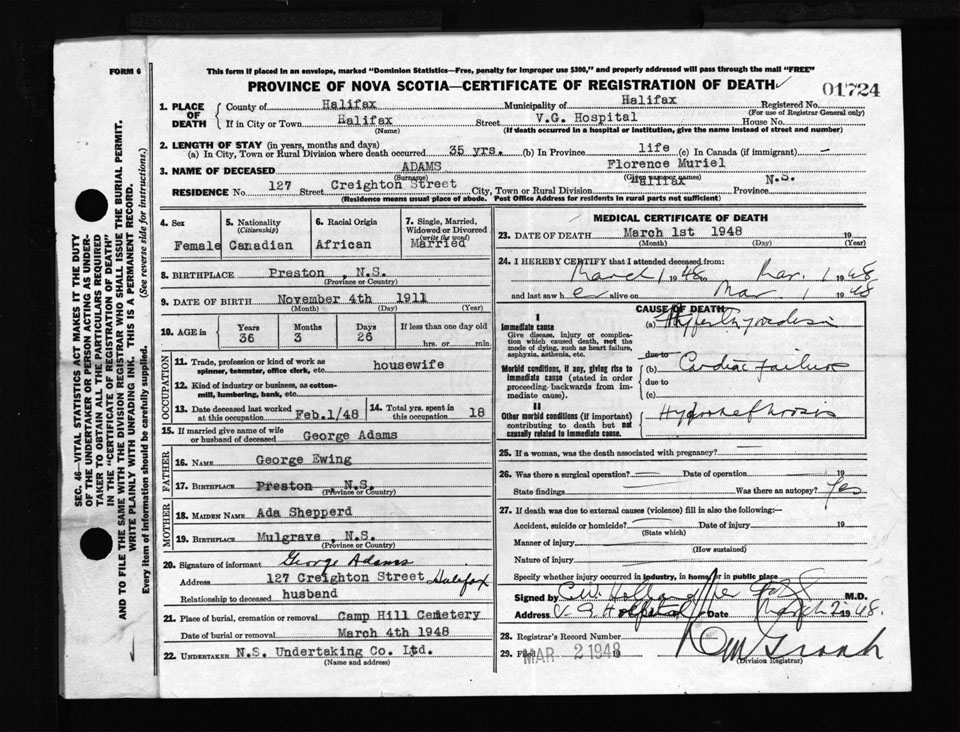 FORM 6
This form if placed in an envelope, marked "Dominion Statistics—Free, penalty for improper use $300," and properly addressed will pass through the mail "FREE"
PROVINCE OF NOVA SCOTIA—CERTIFICATE OF REGISTRATION OF DEATH
01724
1. PLACE OF DEATH
County of Halifax Municipality of Halifax Registered No.
(For use of Registrar General only)
If in City or Town Halifax Street V.G. Hospital House No.
(Name) (If death occurred in a hospital or institution, give the name instead of street and number)
2. LENGTH OF STAY (in years, months and days)
(a) In City, Town or Rural Division where death occurred 35 yrs. (b) In Province life (c) In Canada (if immigrant) —
3. NAME OF DECEASED ADAMS Florence Muriel
(Surname) (Given name or names)
RESIDENCE No. 127 Street Creighton Street City, Town or Rural Division Halifax Province N.S.
(Residence means usual place of abode. Post Office Address for residents in rural parts not sufficient)
4. Sex
Female
5. Nationality
(Citizenship)
Canadian
6. Racial Origin
African
7. Single, Married, Widowed or Divorced
(write the word)
Married
8. BIRTHPLACE Preston, N.S.
(Province or Country)
9. DATE OF BIRTH November 4th 1911
(Month) (Day) (Year)
10. AGE in Years Months Days If less than one day old
36 3 26 hrs. or min.
OCCUPATION
11. Trade, profession or kind of work as spinner, teamster, office clerk, etc. housewife
12. Kind of industry or business, as cotton-mill, lumbering, bank, etc.
13. Date deceased last worked at this occupation Feb.1/48
14. Total yrs. spent in this occupation 18
15. If married give name of wife or husband of deceased George Adams
FATHER
16. NAME George Ewing
17. BIRTHPLACE Preston N.S.
(Province or Country)
MOTHER
18. MAIDEN NAME Ada Shepperd
19. BIRTHPLACE Mulgrave, N.S.
(Province or Country)
20. Signature of informant George Adams
Address 127 Creighton Street Halifax
Relationship to deceased husband
21. Place of burial, cremation or removal Camp Hill Cemetery
Date of burial or removal March 4th 1948
22. UNDERTAKER N.S. Undertaking Co. Ltd.
(Name and address)
MEDICAL CERTIFICATE OF DEATH
23. DATE OF DEATH March 1st 1948 19
(Month) (Day) (Year)
24. I HEREBY CERTIFY that I attended deceased from:
March 1 1948 to Mar. 1 1948
and last saw her alive on Mar 1 1948
CAUSE OF DEATH
I
Immediate cause
Give disease, injury or complication which caused death, not the mode of dying, such as heart failure, asphyxia, asthenia, etc.
(a)
due to
Morbid conditions, if any, giving rise to immediate cause (stated in order proceeding backwards from immediate cause).
(b) Cardiac failure
due to
(c)
II
Other morbid conditions (if important) contributing to death but not causally related to immediate cause.
Hydronephrosis
25. If a woman, was the death associated with pregnancy?
26. Was there a surgical operation? Date of operation 19
State findings Was there an autopsy? Yes
27. If death was due to external causes (violence) fill in also the following:—
Accident, suicide or homicide? Date of injury 19
(State which)
Manner of injury
(How sustained)
Nature of injury
Specify whether injury occurred in industry, in home, or in public place
Signed by M.D.
Address V.G. Hospital Date March 2 1948.
28. Registrar's Record Number
29. Filed MAR 2 1948 19
(Division Registrar)
SEC. 46—VITAL STATISTICS ACT MAKES IT THE DUTY OF THE UNDERTAKER OR PERSON ACTING AS UNDERTAKER TO OBTAIN ALL THE PARTICULARS REQUIRED IN THE "CERTIFICATE OF REGISTRATION OF DEATH" AND TO FILE THE SAME WITH THE DIVISION REGISTRAR WHO SHALL ISSUE THE BURIAL PERMIT.
WRITE PLAINLY WITH UNFADING INK. THIS IS A PERMANENT RECORD.
Every item of information should be carefully supplied. (See reverse side for instructions.)